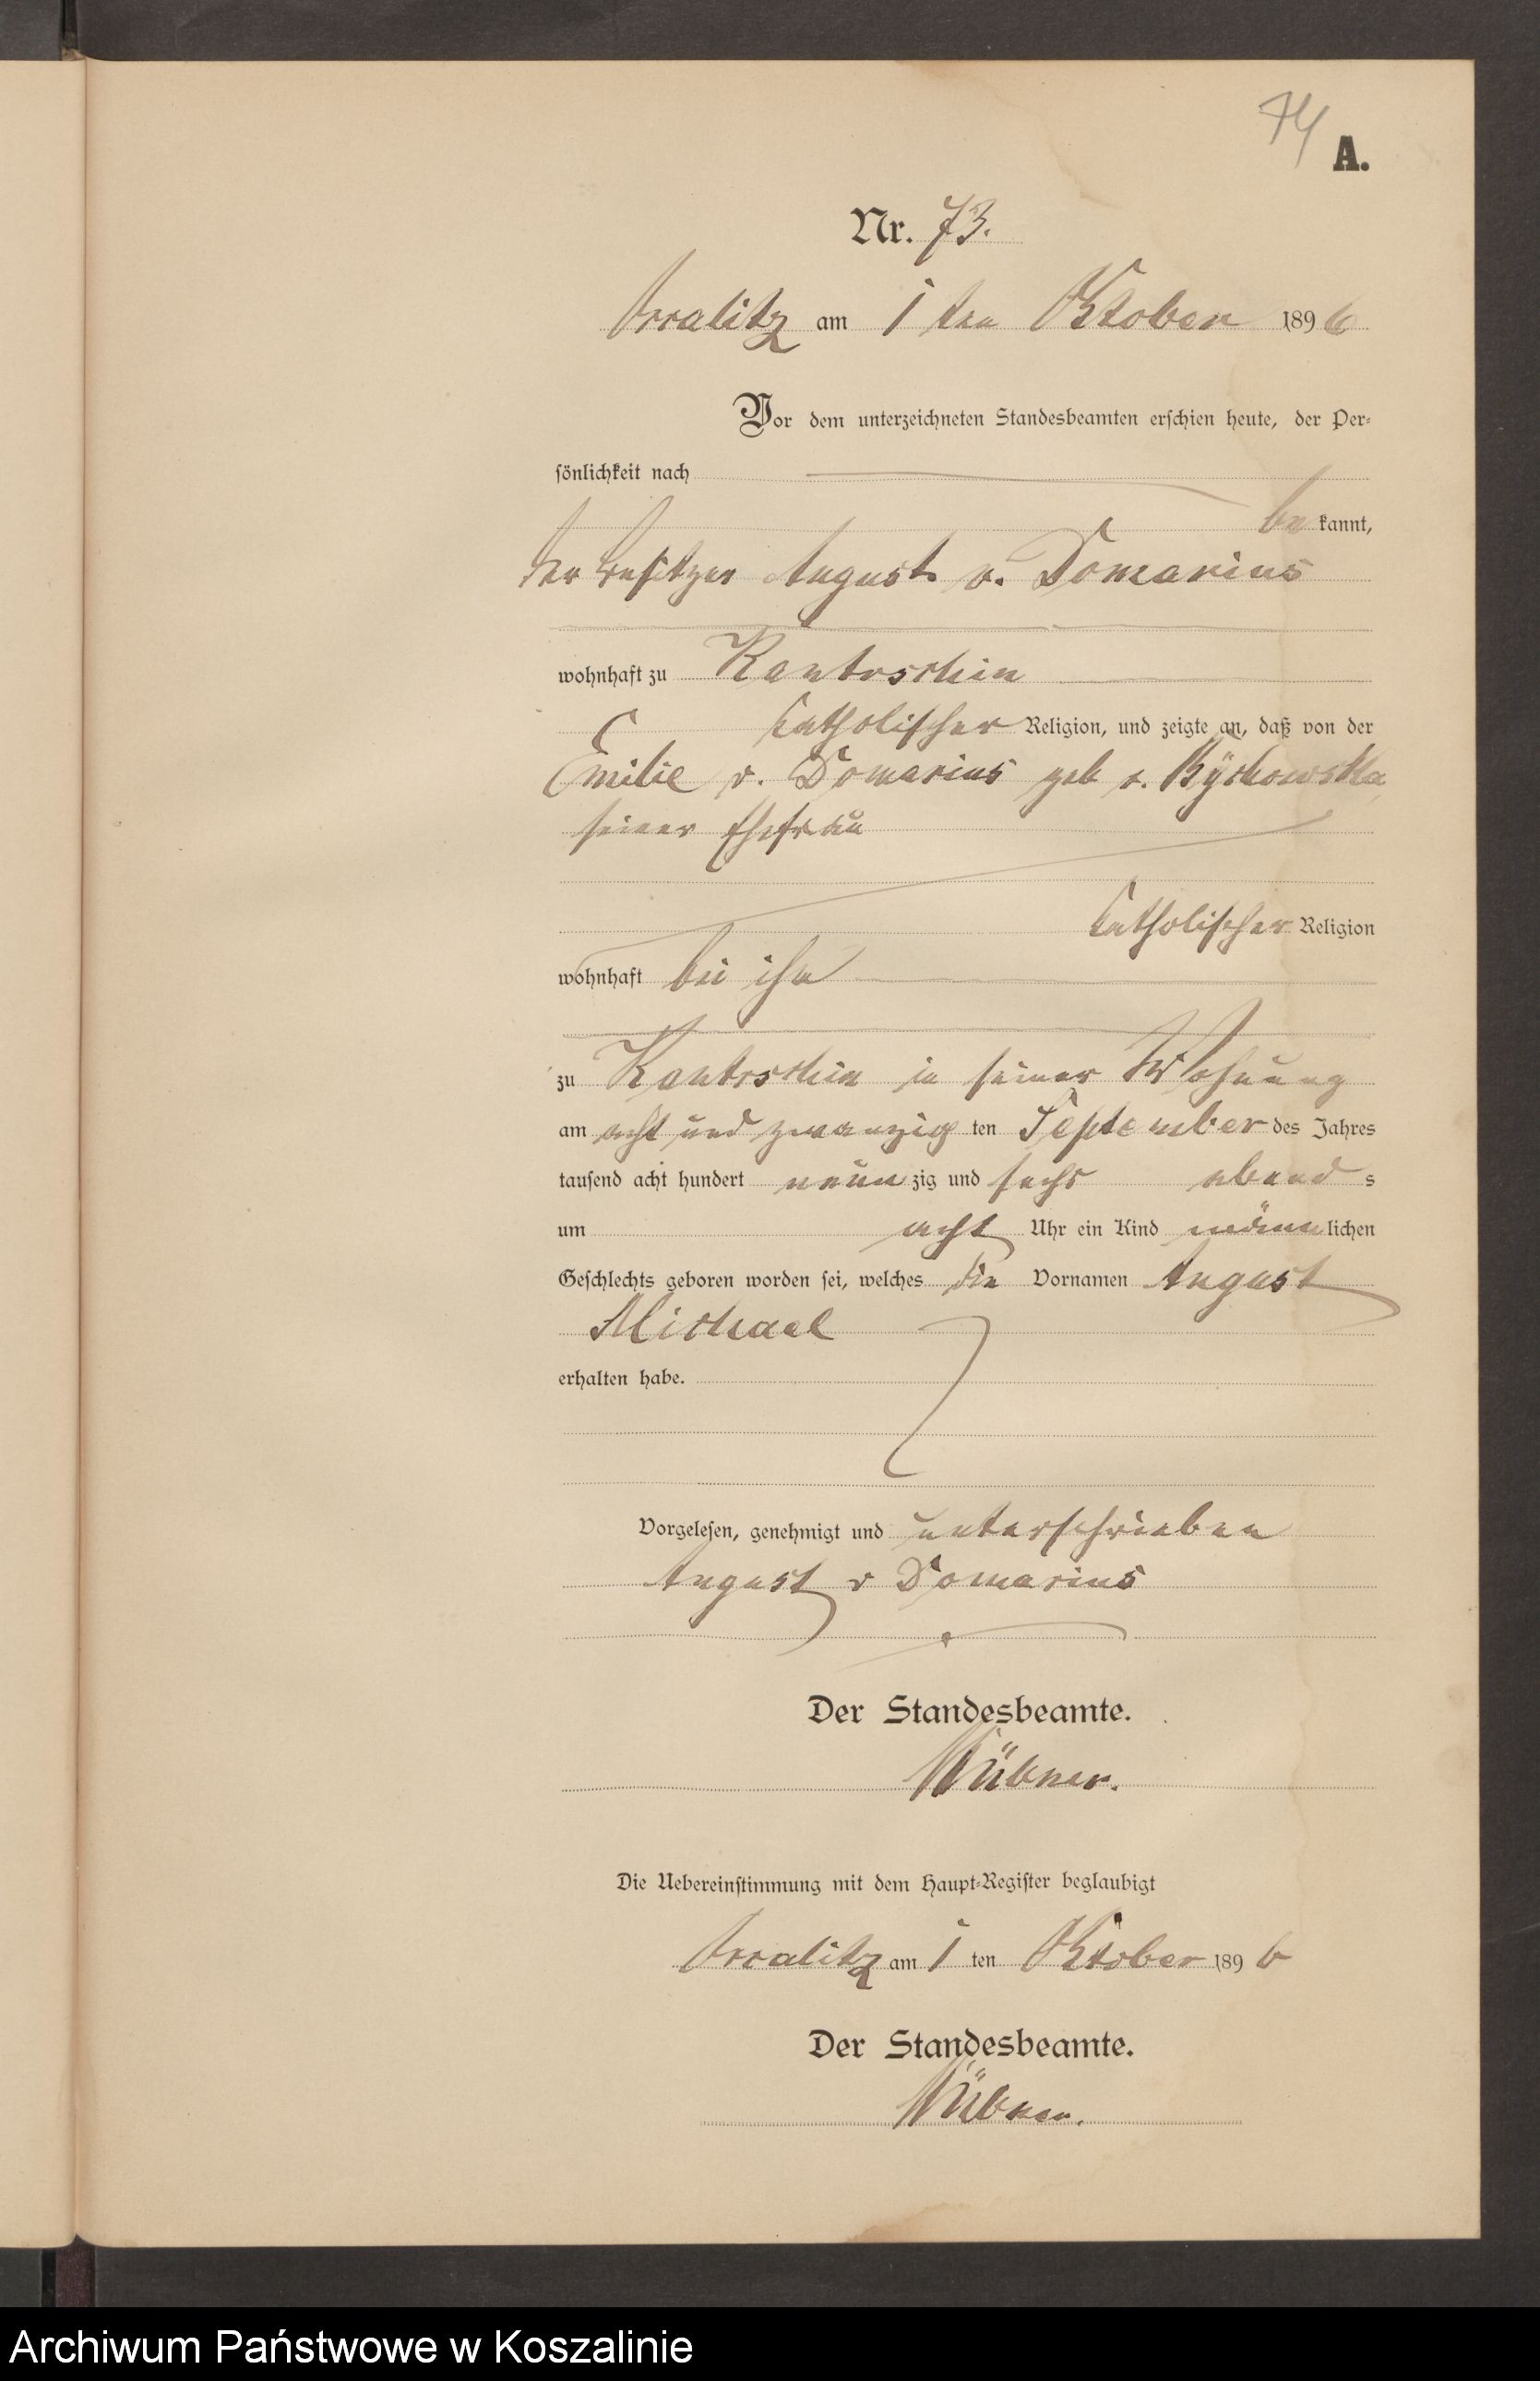 74
A.
Nr. 73.
am 1 ten Oktober 1896
Vor dem unterzeichneten Standesbeamten erschien heute, der Per-
sönlichkeit nach
be kannt,
der Besitzer August v. Domarius
wohnhaft zu Kantrschin
katholischer Religion, und zeigte an, daß von der
Emilie v. Domarius geb v.
seiner Ehefrau
katholischer Religion
wohnhaft bei ihm
zu Kantrschin in seiner Wohnung
am acht und zwanzig ten September des Jahres
tausend acht hundert neun zig und sechs abend s
um acht Uhr ein Kind männ lichen
Geschlechts geboren worden sei, welches die Vornamen August
Michael
erhalten habe.
Vorgelesen, genehmigt und unterschrieben
August v Domarius
Der Standesbeamte.
Die Uebereinstimmung mit dem Haupt-Register beglaubigt
am 1 ten Oktober 1896
Der Standesbeamte.
Archiwum Państwowe w Koszalinie